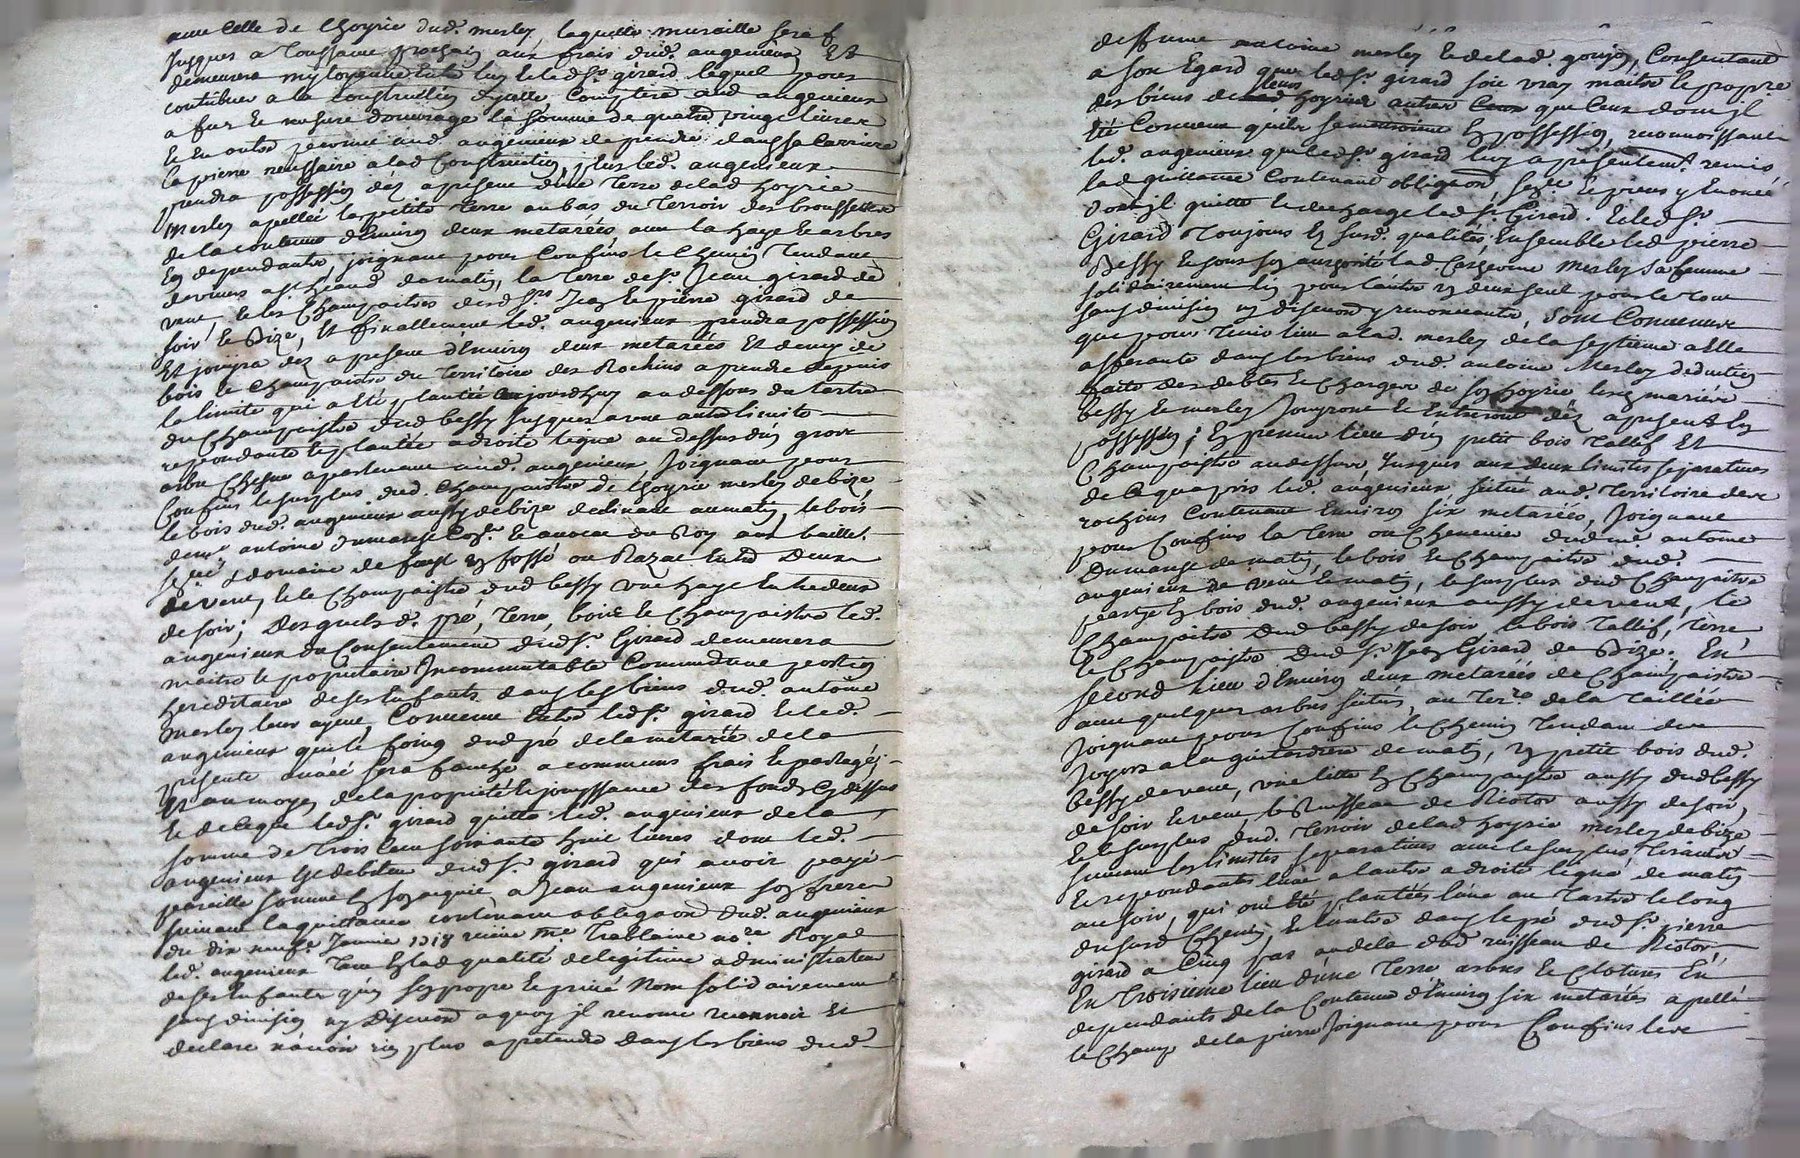 avec celle de lhoyrie dud. merley, laquelle muraille sera f
jusques a Toussaint prochain aux frais dud. angenieux Et
demeurera mytoyenne Entre luy & led. sr. girard, lequel pour
contribuer a la construction dycelle, Comptera aud. angenieux
a fur & mesure douvrage la somme de quatre vingt livres
& En outre permis aud. angenieux de prendre dans sa Carriere
la pierre necessaire a lad. Construction, plus led. angenieux
prendra possession dez a present dune Terre de lad. hoyrie
Merley apellée la petite Terre au bas du Terroir des broussettes
de la contenue dEnviron deux metarées avec la haye & arbres
En dependants, joignant pour Confins le Chemin Tendant
de st. héand de matin, la Terre de sr. Jean girard de
vent & les Champaitres desd. srs. Jean & pierre girard de
soir & Bize, Et finallement led. angenieux prendra possession
Et jouyra dez a present dEnviron deux metarées Et demy de
bois & Champaitre du Territoire des Rochins a prendre depuis
la limite qui a Eté plantée aujourdhuy au dessous du tertre
du Champaitre dud. bessy jusques a une autre limite
repondante & plantée a droite ligne au dessus dun gros
arbre Chesne apartenant aud. angenieux, Joignant pour
Confins le surplus dud. Champaitre de lhoyrie merley de bize
le bois dud. angenieux aussy de bize declinant au matin, le bois
de me. antoine dumarest Coner. & avocat du Roy aux baille.
senec. & domaine de forest un fossé ou Razat Entre Deux
de vent, & le Champaitre dud. bessy une haye Entredeux
de soir; Desquels d. pré, Terre, bois & Champaitre led.
angenieux du Consentement dud. sr. Girard demeurera
maitre & proprietaire Incommutable Comme dune portion
hereditaire de ses Enfants dans les biens dud. antoine
merley leur ayeul, Convenu Entre led. sr. girard & led.
angenieux que le foing dud. pré de la metarée de la
presente année sera fauché a communs frais & partagé;
Et au moyen de la proprieté & jouyssance des fonds cy dessus
& de ce que led. sr. girard quitte led. angenieux de la
somme de Trois Cent soixante huit livres dont led.
angenieux Est debiteur dud. sr. girard qui a avoir payé
pareille somme En son acquit a Jean angenieux son frere
suivant la quittance contenant obligaon. dud. angenieux
du dix neufe. Janvier 1718 recüe me. Trablaine nore. Royal
led. angenieux Tant En lad. qualité de legitime administrateur
de ses Enfants quen son propre & privé Nom solidairement
sans division ny Discuon. a quoy il renonce reconnoit Et
declare navoir rien plus a pretendre dans les biens dud.
deffunt antoine merley & de lad. goujon, Consentant
a son Egard que led. sr. girard soit vray maitre & proprre.
des biens de leurs hoyries autres que Ceux dont il
Eté Convenu quils se mettroient En possession, reconnoissant
led. angenieux que led. sr. girard luy a presentemt. remis
lad. quittance Contenant obligaon. & pieces y Enoncé
dont il quitte & decharge led. sr. Girard. & led. sr.
Girard Toujours En susd. qualités Ensemble led. pierre
Bessy & sous son authorité lad. Catherine Merley sa femme
solidairement lun pour lautre un deux seul pour le Tout
sans division ny discuon. y renonceants, Sont Convenus
que pour Tenir lieu a lad. merley de la septieme a Elle
afferante dans les biens dud. antoine Merley deduction
faite des debtes & Charges de son hoyrie lesd. mariés
bessy & merley Jouyront & Entreront dez a present En
possession; En premier lieu dun petit bois Tallif Et
Champaitre au dessus, Jusques aux deux limites separatives
de Ce qua pris led. angenieux situés aud. Territoire des
rochins Contenant Environ six metarées, Joignant
pour Confins la Terre ou Cheneviere dud. me. antoine
Dumarest de matin, le bois & Champaitre dud.
angenieux de vent & matin, le surplus dud. Champaitre
partye En bois dud. angenieux aussy de vent, le
Champaitre Dud. bessy de soir, le bois Tallif, Terre
& Champaitre Dud. sr. Jean Girard de Bize. En
second lieu dEnviron deux metarées de Champaitre
avec quelques arbres situés, au Terre. de la Taillée
Joignant pour Confins le Chemin Tendant de
Joyeux a la guitardiere de matin, un petit bois dud.
bessy de vent, une litte En Champaitre aussy dud. bessy
de soir & vent, le Ruisseau de Riotor aussy de soir,
Et le surplus dud. Terroir de lad. hoyrie merley de bize
suivant les limites separatives avec le surplus Tirantes
& repondants lune a lautre a droite ligne de matin
au soir, qui ont Eté plantées lune au Tertre le long
du susd. Chemin, & lautre dans le pré dud. sr. pierre
girard a Cinq pas au dela dud. ruisseau de Riotor,
En Troisieme lieu dune Terre arbres & Clotures En
dependants De la Contenue dEnviron six metarées apellé
le Champ de la pierre Joignant pour Confins le